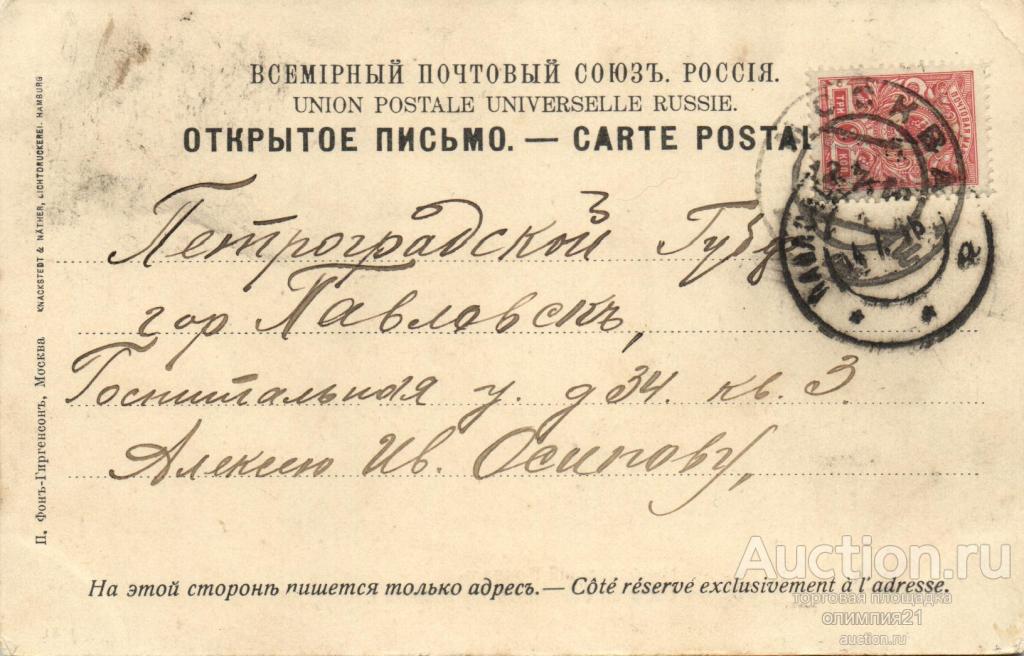 ВСЕМІРНЫЙ ПОЧТОВЫЙ СОЮЗЪ. РОССІЯ.
UNION POSTALE UNIVERSELLE RUSSIE.
ОТКРЫТОЕ ПИСЬМО. — CARTE POSTAL
МОСКВА
Петроградской Губ
гор Павловскъ,
Госпитальная у. д 34. кв. 3.
Алексею Ив. Осипову,
На этой сторонѣ пишется только адресъ. — Côté réservé exclusivement à l'adresse.
П. Фонъ-Гиргенсонъ, Москва
KNACKSTEDT & NÄTHER, LICHTDRUCKEREI. HAMBURG
Auction.ru
торговая площадка
олимпия21
auction.ru